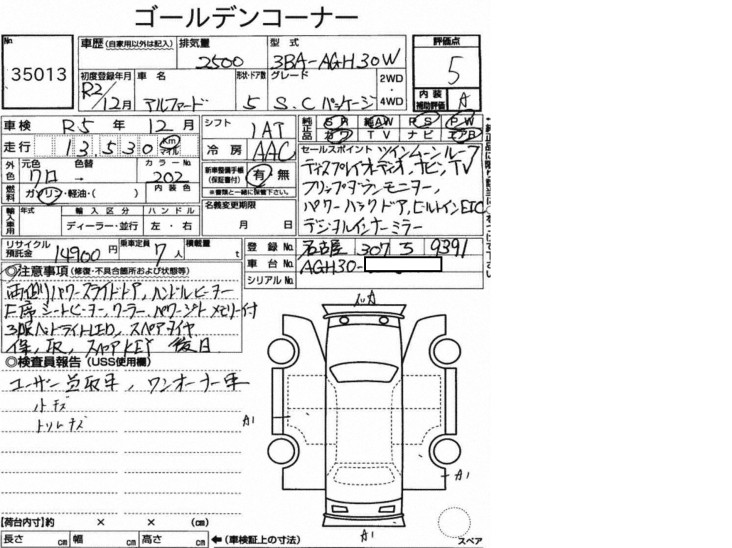 ゴールデンコーナー
No 35013
車歴 (自家用以外は記入) 排気量 2500 型式 3BA-AGH30W
評価点 5
初度登録年月 R2/12月 車名 アルファード 形状・ドア数 5 グレード S.C パッケージ 2WD・4WD
内装補助評価 A
車検 R5年 12月 シフト IAT
純正品 SR AW PS PW
革 TV ナビ エアB
走行 13,530 Km マイル 冷房 AAC
セールスポイント ツインムーンルーフ
ディスプレイオーディオ,ナビ,TV
フリップダウンモニター,
パワーバックドア,ビルトインETC
デジタルインナーミラー
外色 元色 クロ 色替 → カラーNo 202
新車整備手帳(保証書付) 有・無
※書類と一緒に保管下さい。
燃料 ガソリン・軽油・( ) 内装色
名義変更期限 月 日
輸入車用 年式 輸入区分 ディーラー・並行 ハンドル 左・右
リサイクル預託金 14900円 乗車定員 7人 積載量 t
登録No. 名古屋 307 ち 9391
車台No. AGH30-
シリアルNo.
◎注意事項 (修復・不具合箇所および状態等)
両側パワースライドドア,ハンドルヒーター
F席シートヒーター,クーラー,パワーシートメモリー付
3眼ヘッドライトLED,スペアタイヤ
保,取,スペアKEY 後日
◎検査員報告 (USS使用欄)
ユーザー買取車,ワンオーナー車
小キズ
トリムキズ
A1
A1
A1
スペア
【荷台内寸】約 × × (cm)
長さ cm 幅 cm 高さ cm ←(車検証上の寸法)